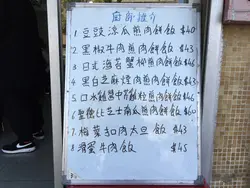 廚師推介
1 豆豉涼瓜煎肉餅飯 $40
2 黑椒牛肉煎肉餅飯 $43
3 日式海苔蟹柳煎肉餅飯 $43
4 黑白芝麻煙肉煎肉餅飯 $43
5 口水雞 煎肉餅飯 $46
芝士南瓜煎肉餅飯
7 梅菜扣肉大豆飯 $43
8 滑蛋牛肉飯 $45